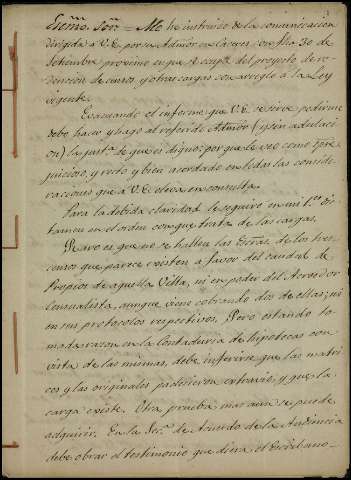 Excmo. Sor. = Me he instruido de la comunicacion
dirigida á V.E. por su Admor. en con fha. 30 de
Setiembre proximo en que se ocupa del proyecto de re-
dencion de censos y otras cargas con arreglo á la Ley
vigente.
Evacuando el informe que V.E. se sirve pedirme
debo hacer y hago al referido Admor. (y sin adulaci-
on) la justa. de que es digno; por que le veo como siempre
juicioso, y recto y bien acordado en todas las conside-
raciones que á V.E. eleva en consulta.
Para la debida claridad le seguire en mi
tamen en el orden con que trata de las cargas.
Raro es que no se hallen las Ecras. de los tres
censos que parece existen a favor del caudal de
propios de aquella Villa, ni en poder del Acreedor
Censualista, aunque viene cobrando dos de ellas; ni
en sus protocolos respectivos. Pero estando to-
mada razon en la Contaduria de hipotecas con
vista de las mismas, debe inferirse que las matri-
ces y las originales padecieron extravio, y que la
carga existe. Otra prueba mas aun se puede
adquirir. En la Sec. de Acuerdo de la Audiencia
debe obrar el testimonio que diera el Escribano